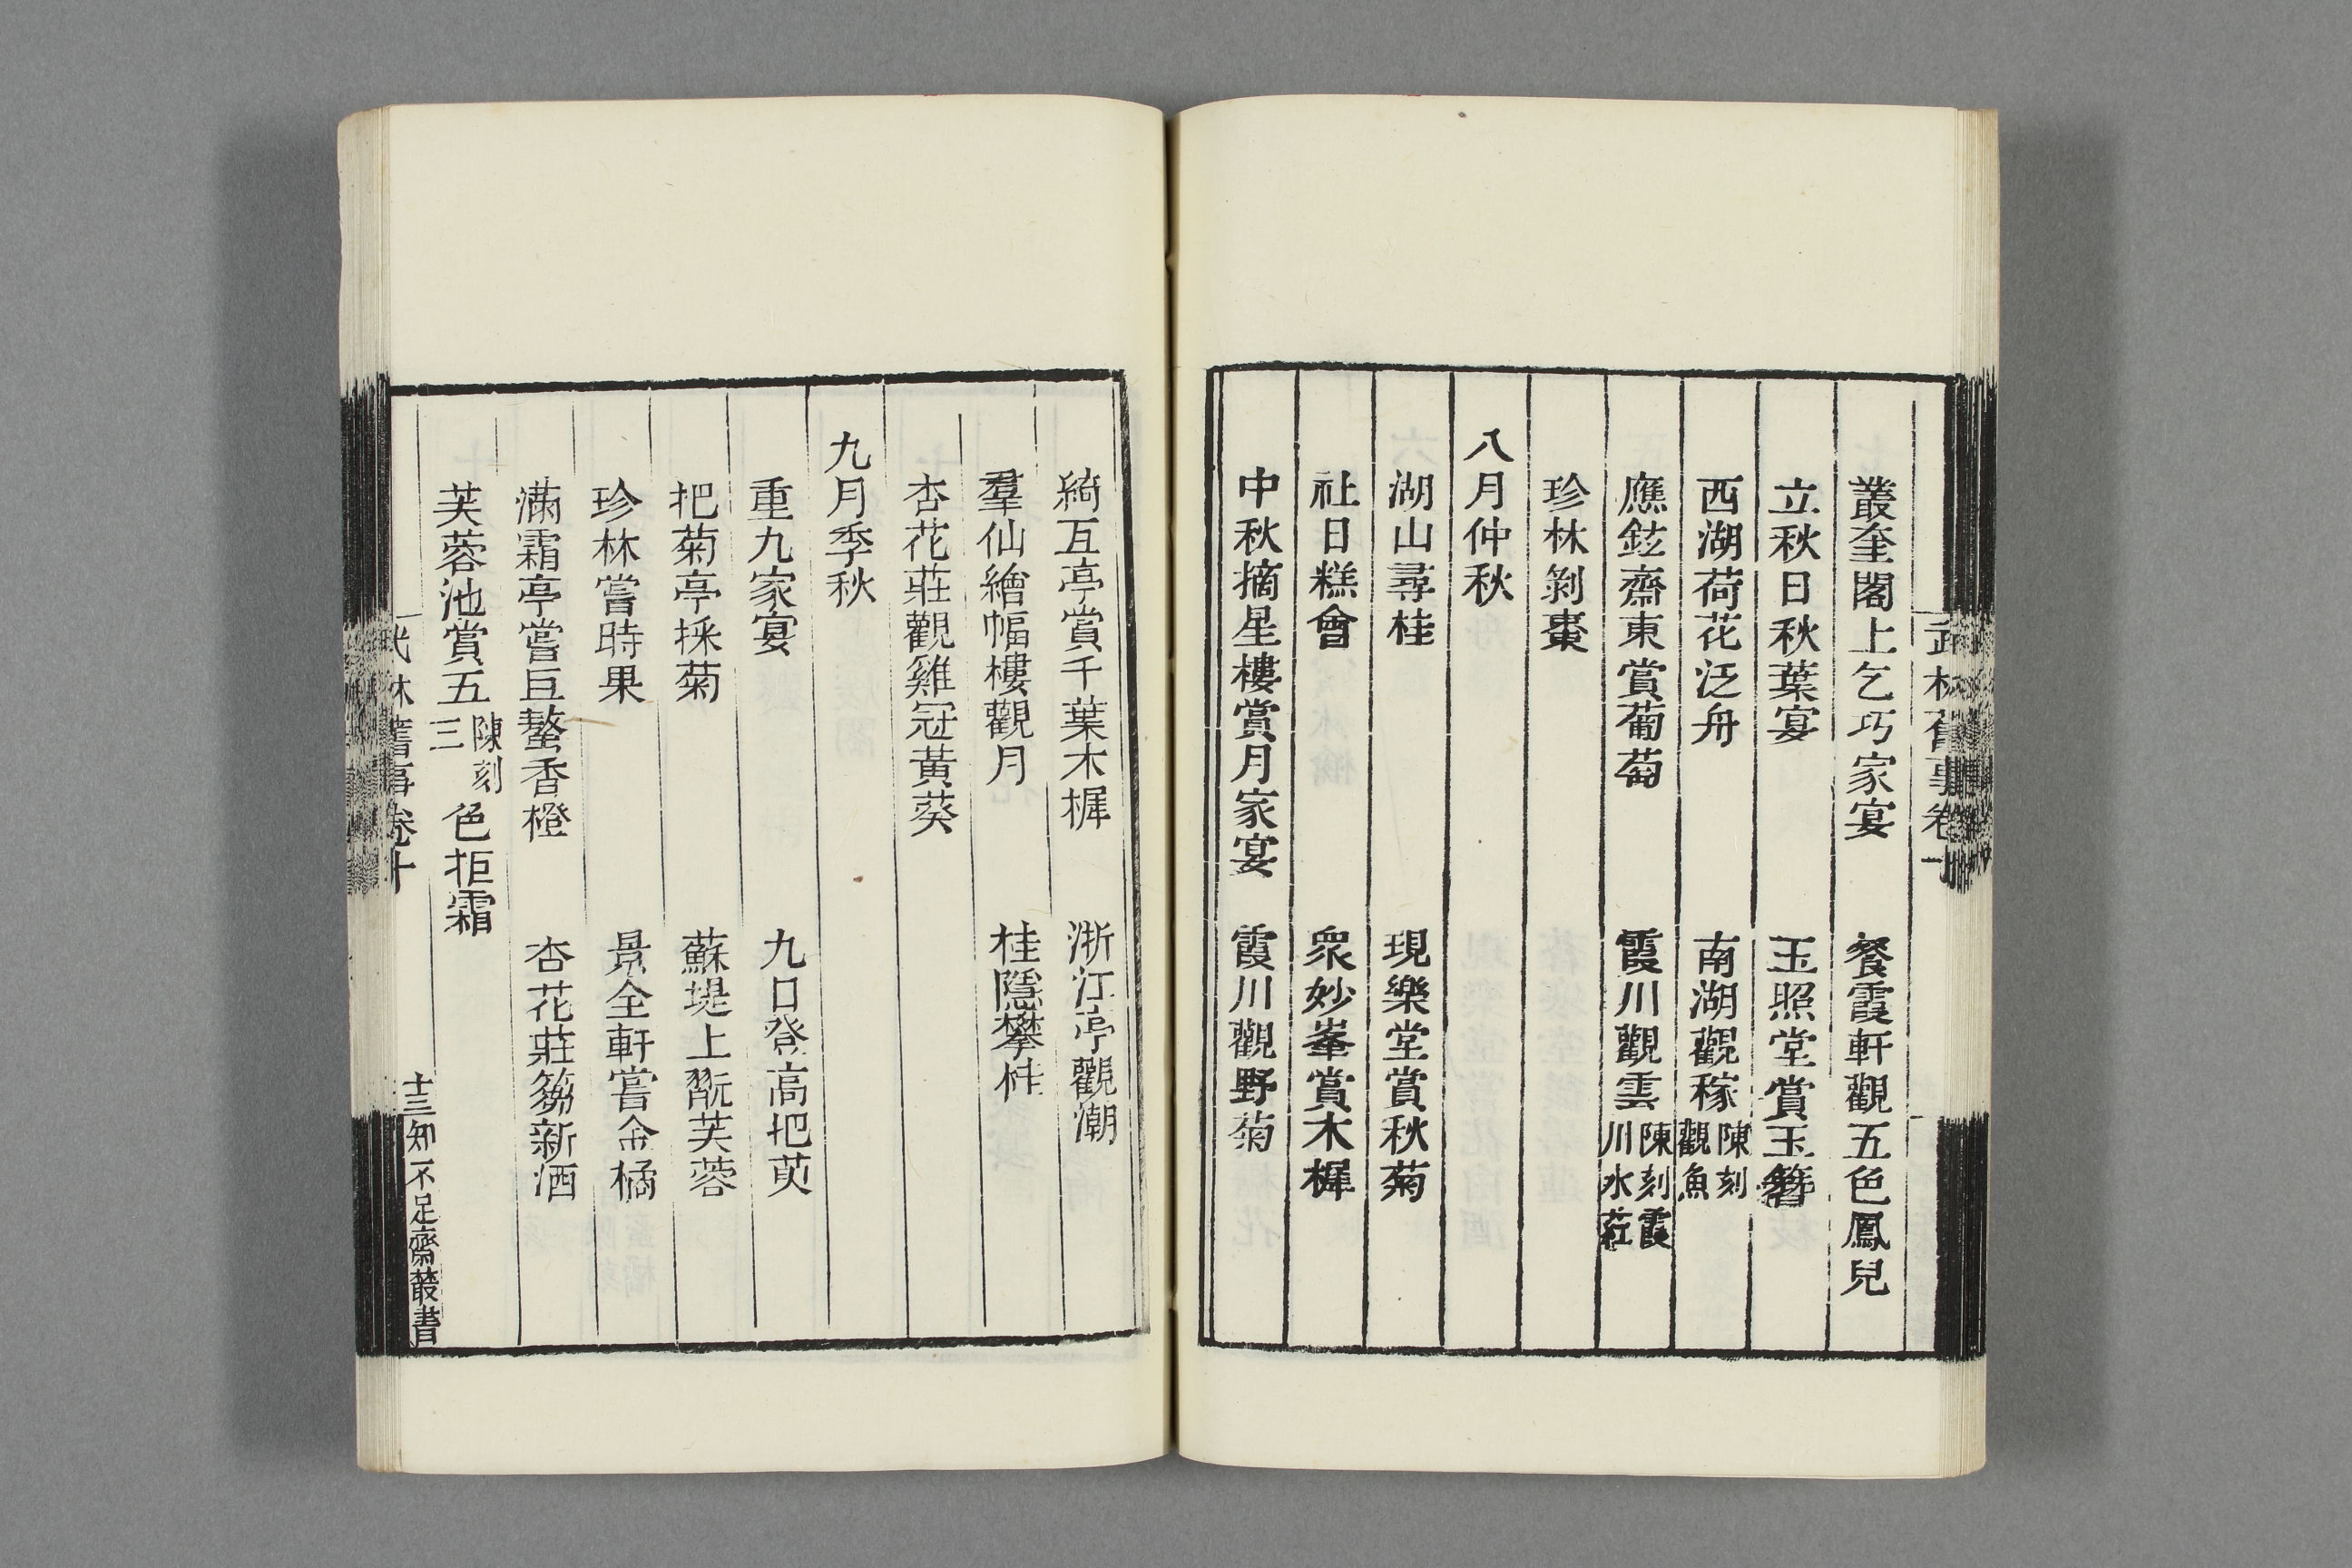 武林舊事卷十
叢奎閣上乞巧家宴 餐霞軒觀五色鳳兒
立秋日秋葉宴 玉照堂賞玉簪
西湖荷花泛舟 南湖觀稼陳刻觀魚
應鉉齋東賞葡萄 霞川觀雲陳刻霞川水莊
珍林剝棗
八月仲秋
湖山尋桂 現樂堂賞秋菊
社日糕會 衆妙峯賞木樨
中秋摘星樓賞月家宴 霞川觀野菊
綺互亭賞千葉木樨 浙江亭觀潮
羣仙繪幅樓觀月 桂隱攀桂
杏花莊觀雞冠黃葵
九月季秋
重九家宴 九日登高把萸
把菊亭採菊 蘇堤上翫芙蓉
珍林嘗時果 景全軒嘗金橘
滿霜亭嘗巨螯香橙 杏花莊篘新酒
芙蓉池賞五陳刻三色拒霜
武林舊事卷十 十三 知不足齋叢書